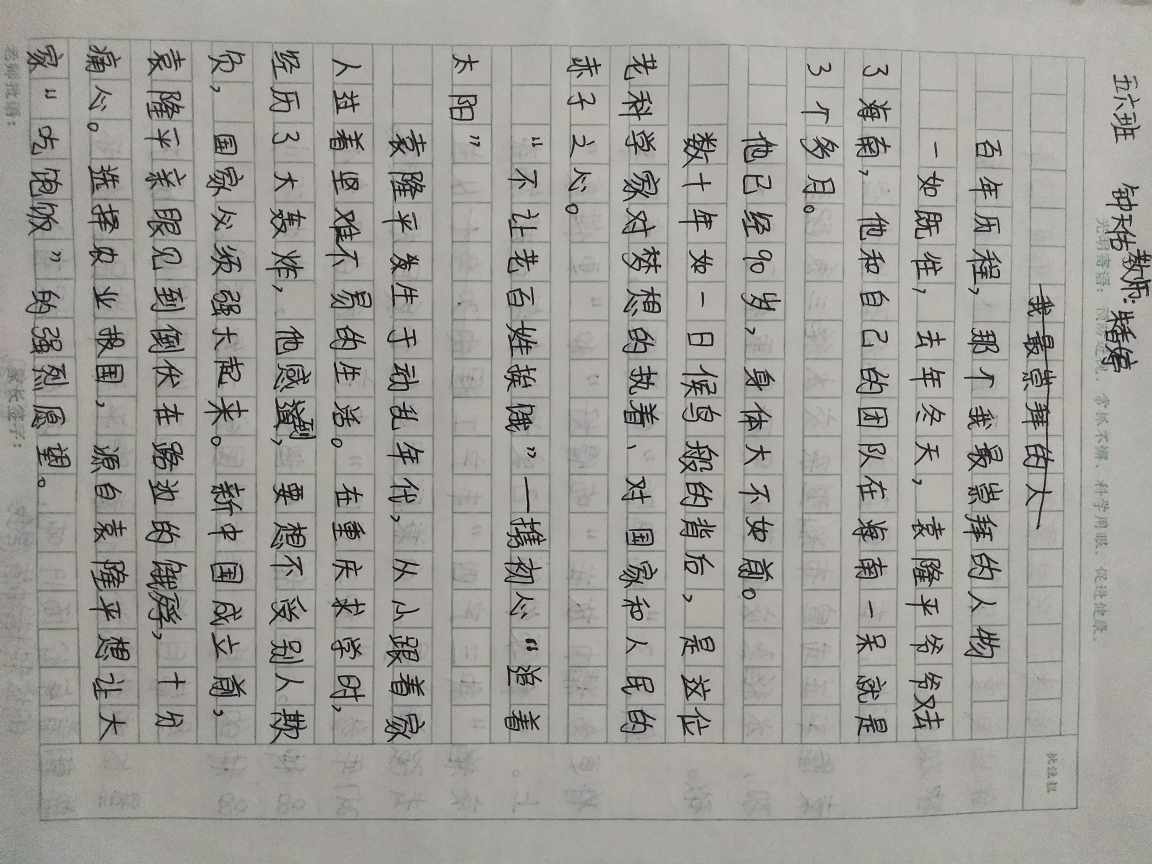 五六班 钟天佑 教师:朱婷婷
我最崇拜的人
百年历程,那个我最崇拜的人物
一如既往,去年冬天,袁隆平爷爷又去
了海南,他和自己的团队在海南一呆就是
3个多月。
他已经90岁,身体大不如前。
数十年如一日候鸟般的背后,是这位
老科学家对梦想的执着、对国家和人民的
赤子之心。
“不让老百姓挨饿”——携初心“追着
太阳”
袁隆平发生于动乱年代,从小跟着家
人过着坚难不易的生活。在重庆求学时,
经历了大轰炸,他感到,要想不受别人欺
负,国家必须强大起来。新中国成立前,
袁隆平亲眼见到倒伏在路边的饿殍,十分
痛心。选择农业救国,源自袁隆平想让大
家“吃饱饭”的强烈愿望。
老师批语:
家长签字: